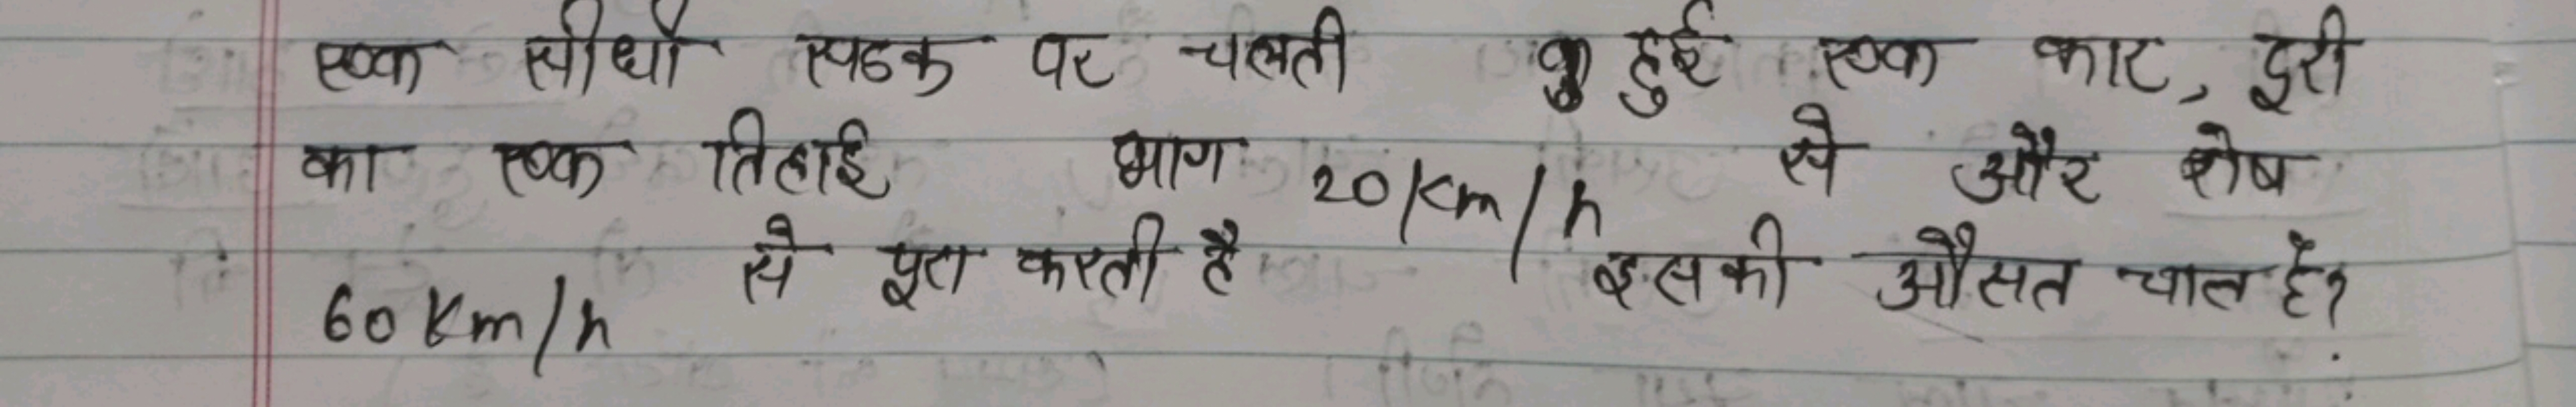 एक सीधी सडक पर चलती हुई एक कार, दूरी
का एक तिहाई भाग 20 km/h से और शेष
60 km/h से पूरा करती है इसकी औसत चाल है?